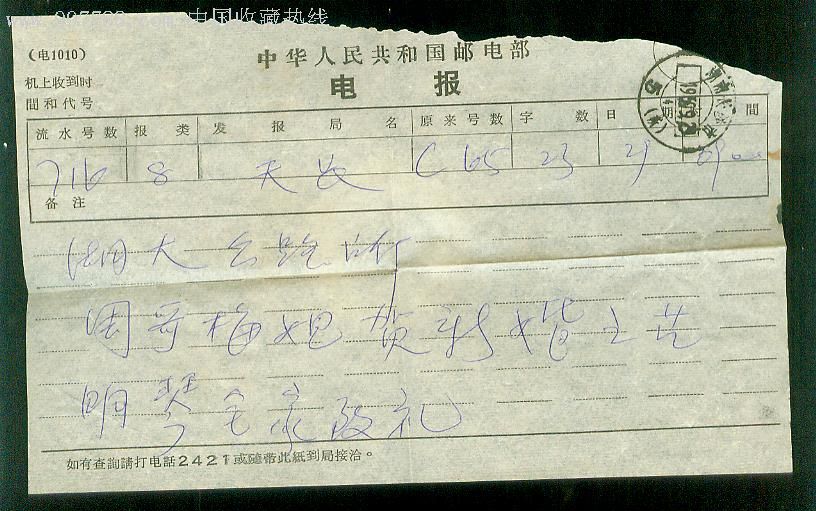 中国收藏热线
中华人民共和国邮电部
(电1010)
电 报
机上收到时
間和代号
流水号数 报类 发报局名 原来号数 字数 日期 間
716 8 天长 C65 23 29 0900
备注
湖大
周哥梅姐贺新婚之
明琴全家致礼
如有查詢請打电話2421或隨带此紙到局接洽。